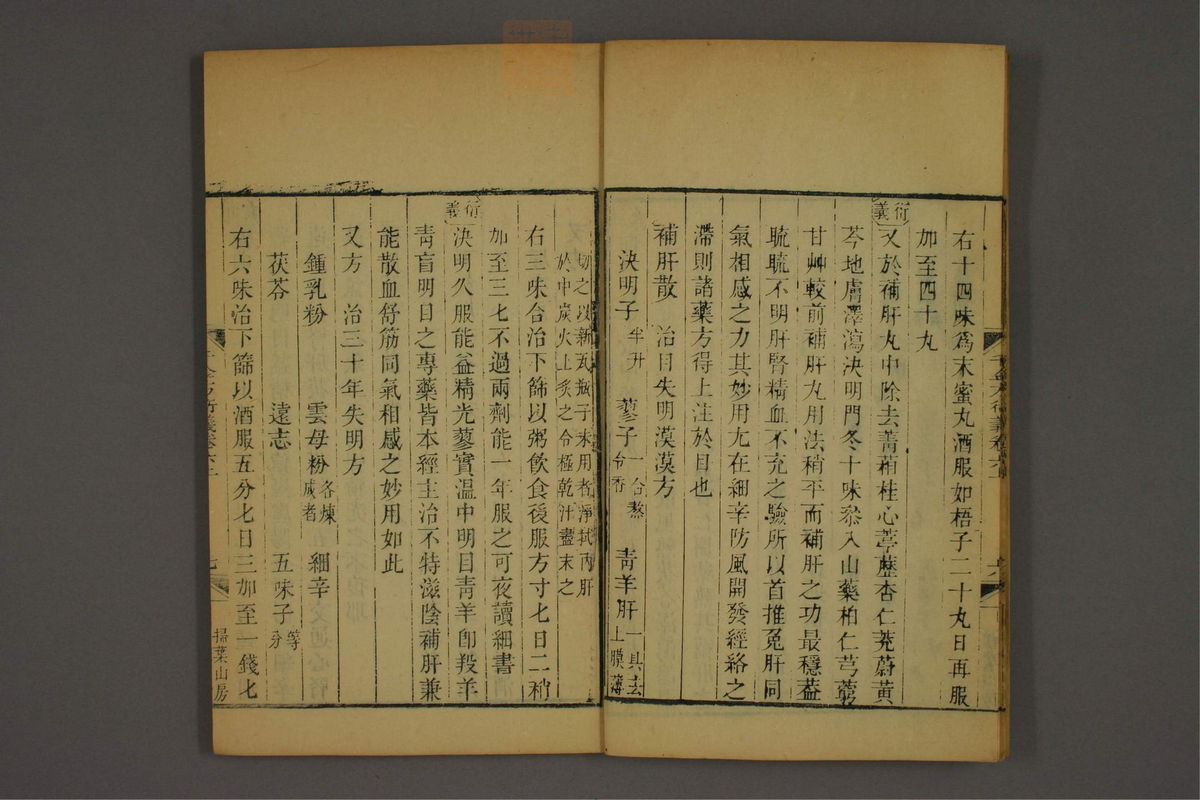 右十四味爲末蜜丸酒服如梧子二十丸日再服
加至四十丸
衍義
又於補肝丸中除去菁葙桂心葶藶杏仁茺蔚黃
芩地膚澤瀉決明門冬十味添入山藥柏仁芎藭
甘艸較前補肝丸用法稍平而補肝之功最穩葢
䀮䀮不明肝腎精血不充之驗所以首推兔肝同
氣相感之力其妙用尢在細辛防風開發經絡之
滯則諸藥方得上注於目也
補肝散 治目失明漠漠方
決明子半升 蓼子一合熬令香 青羊肝一具去上膜薄
切之以新瓦瓶子未用者淨拭內肝
於中炭火上炙之令極乾汁盡末之
右三味合治下篩以粥飲食後服方寸七日二稍
加至三七不過兩劑能一年服之可夜讀細書
衍義
決明久服能益精光蓼實溫中明目青羊卽羖羊
青盲明目之專藥皆本經主治不特滋陰補肝兼
能散血舒筋同氣相感之妙用如此
又方 治三十年失明方
鍾乳粉 雲母粉各煉成者 細辛
茯苓 遠志 五味子等分
右六味治下篩以酒服五分七日三加至一錢七
千金方衍義卷六上
七
掃葉山房